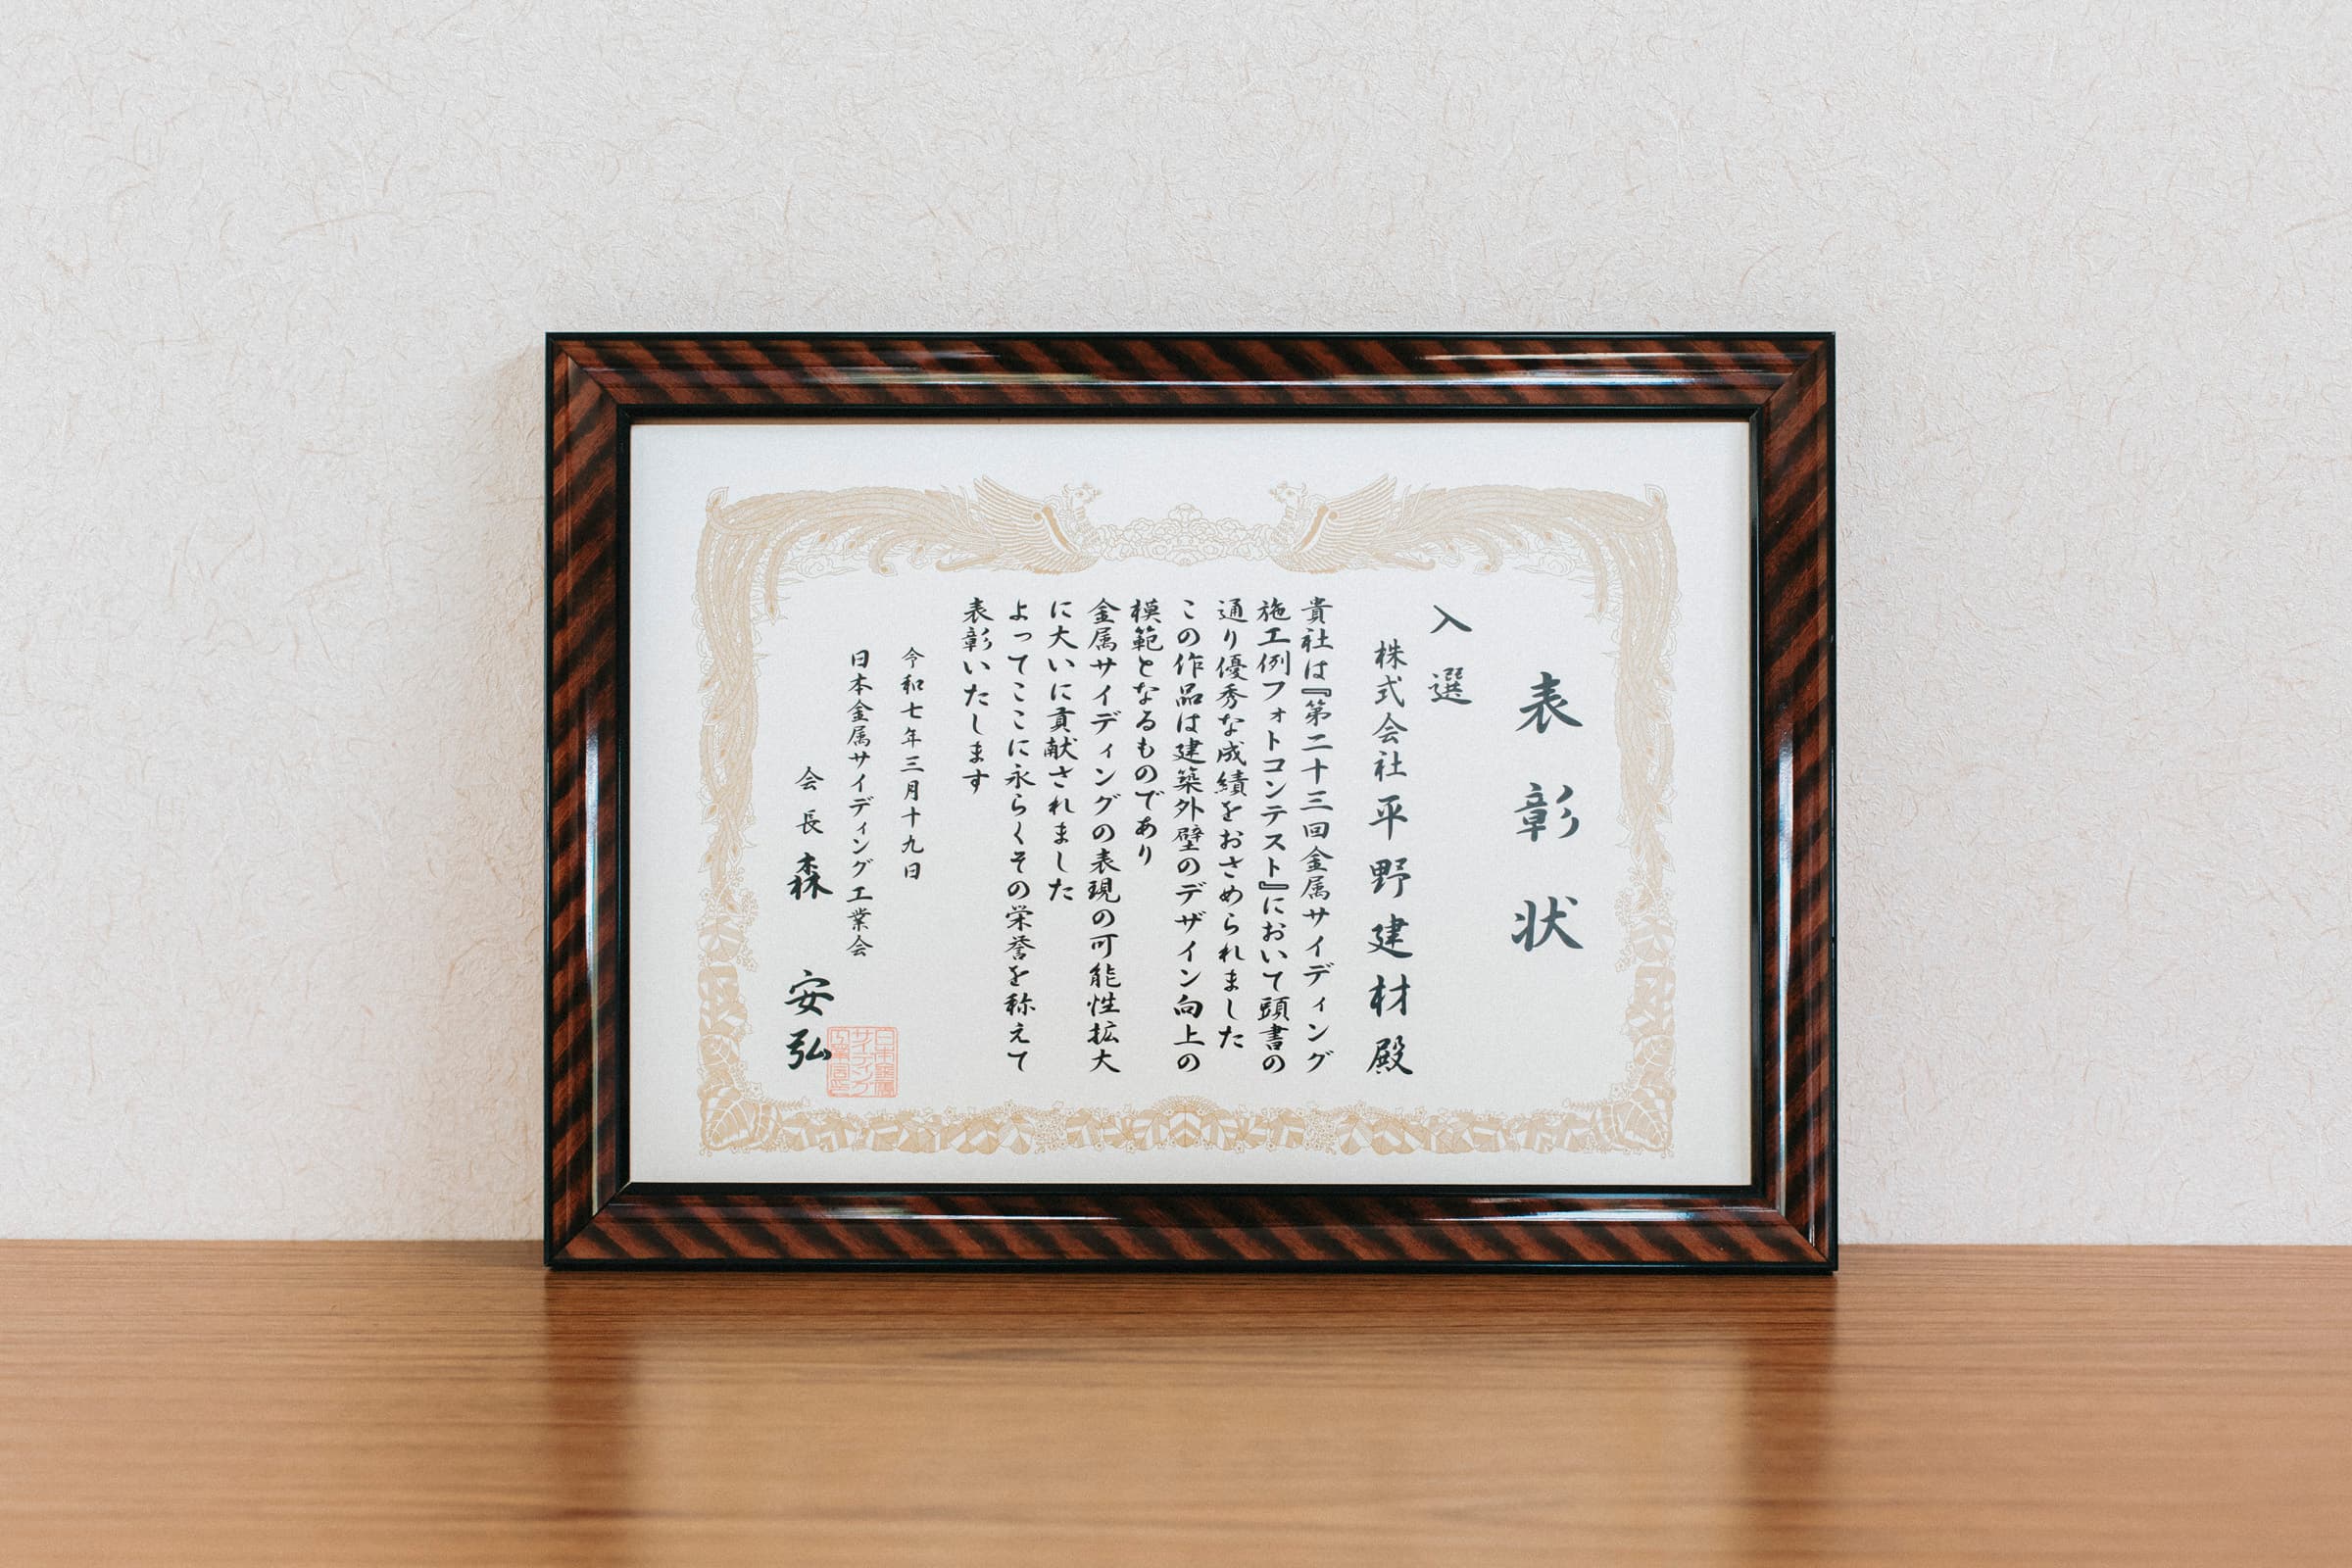 表彰状
入選
株式会社平野建材殿
貴社は『第二十三回金属サイディング
施工例フォトコンテスト』において頭書の
通り優秀な成績をおさめられました
この作品は建築外壁のデザイン向上の
模範となるものであり
金属サイディングの表現の可能性拡大
に大いに貢献されました
よってここに永らくその栄誉を称えて
表彰いたします
令和七年三月十九日
日本金属サイディング工業会
会長 森 安弘